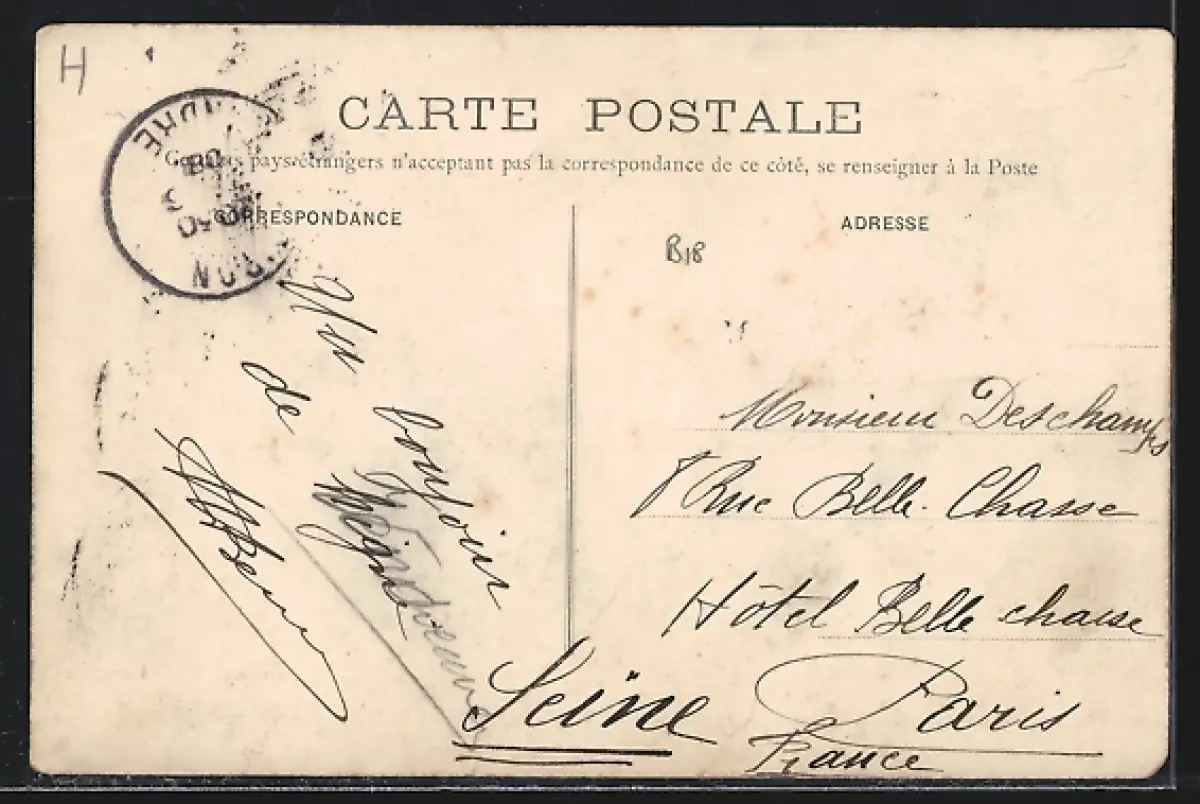 H
CARTE POSTALE
Certains pays étrangers n'acceptant pas la correspondance de ce côté, se renseigner à la Poste
CORRESPONDANCE
ADRESSE
B18
bonjour
de
Monsieur Deschamps
8 Rue Belle-Chasse
Hôtel Belle chasse
Seine Paris
France